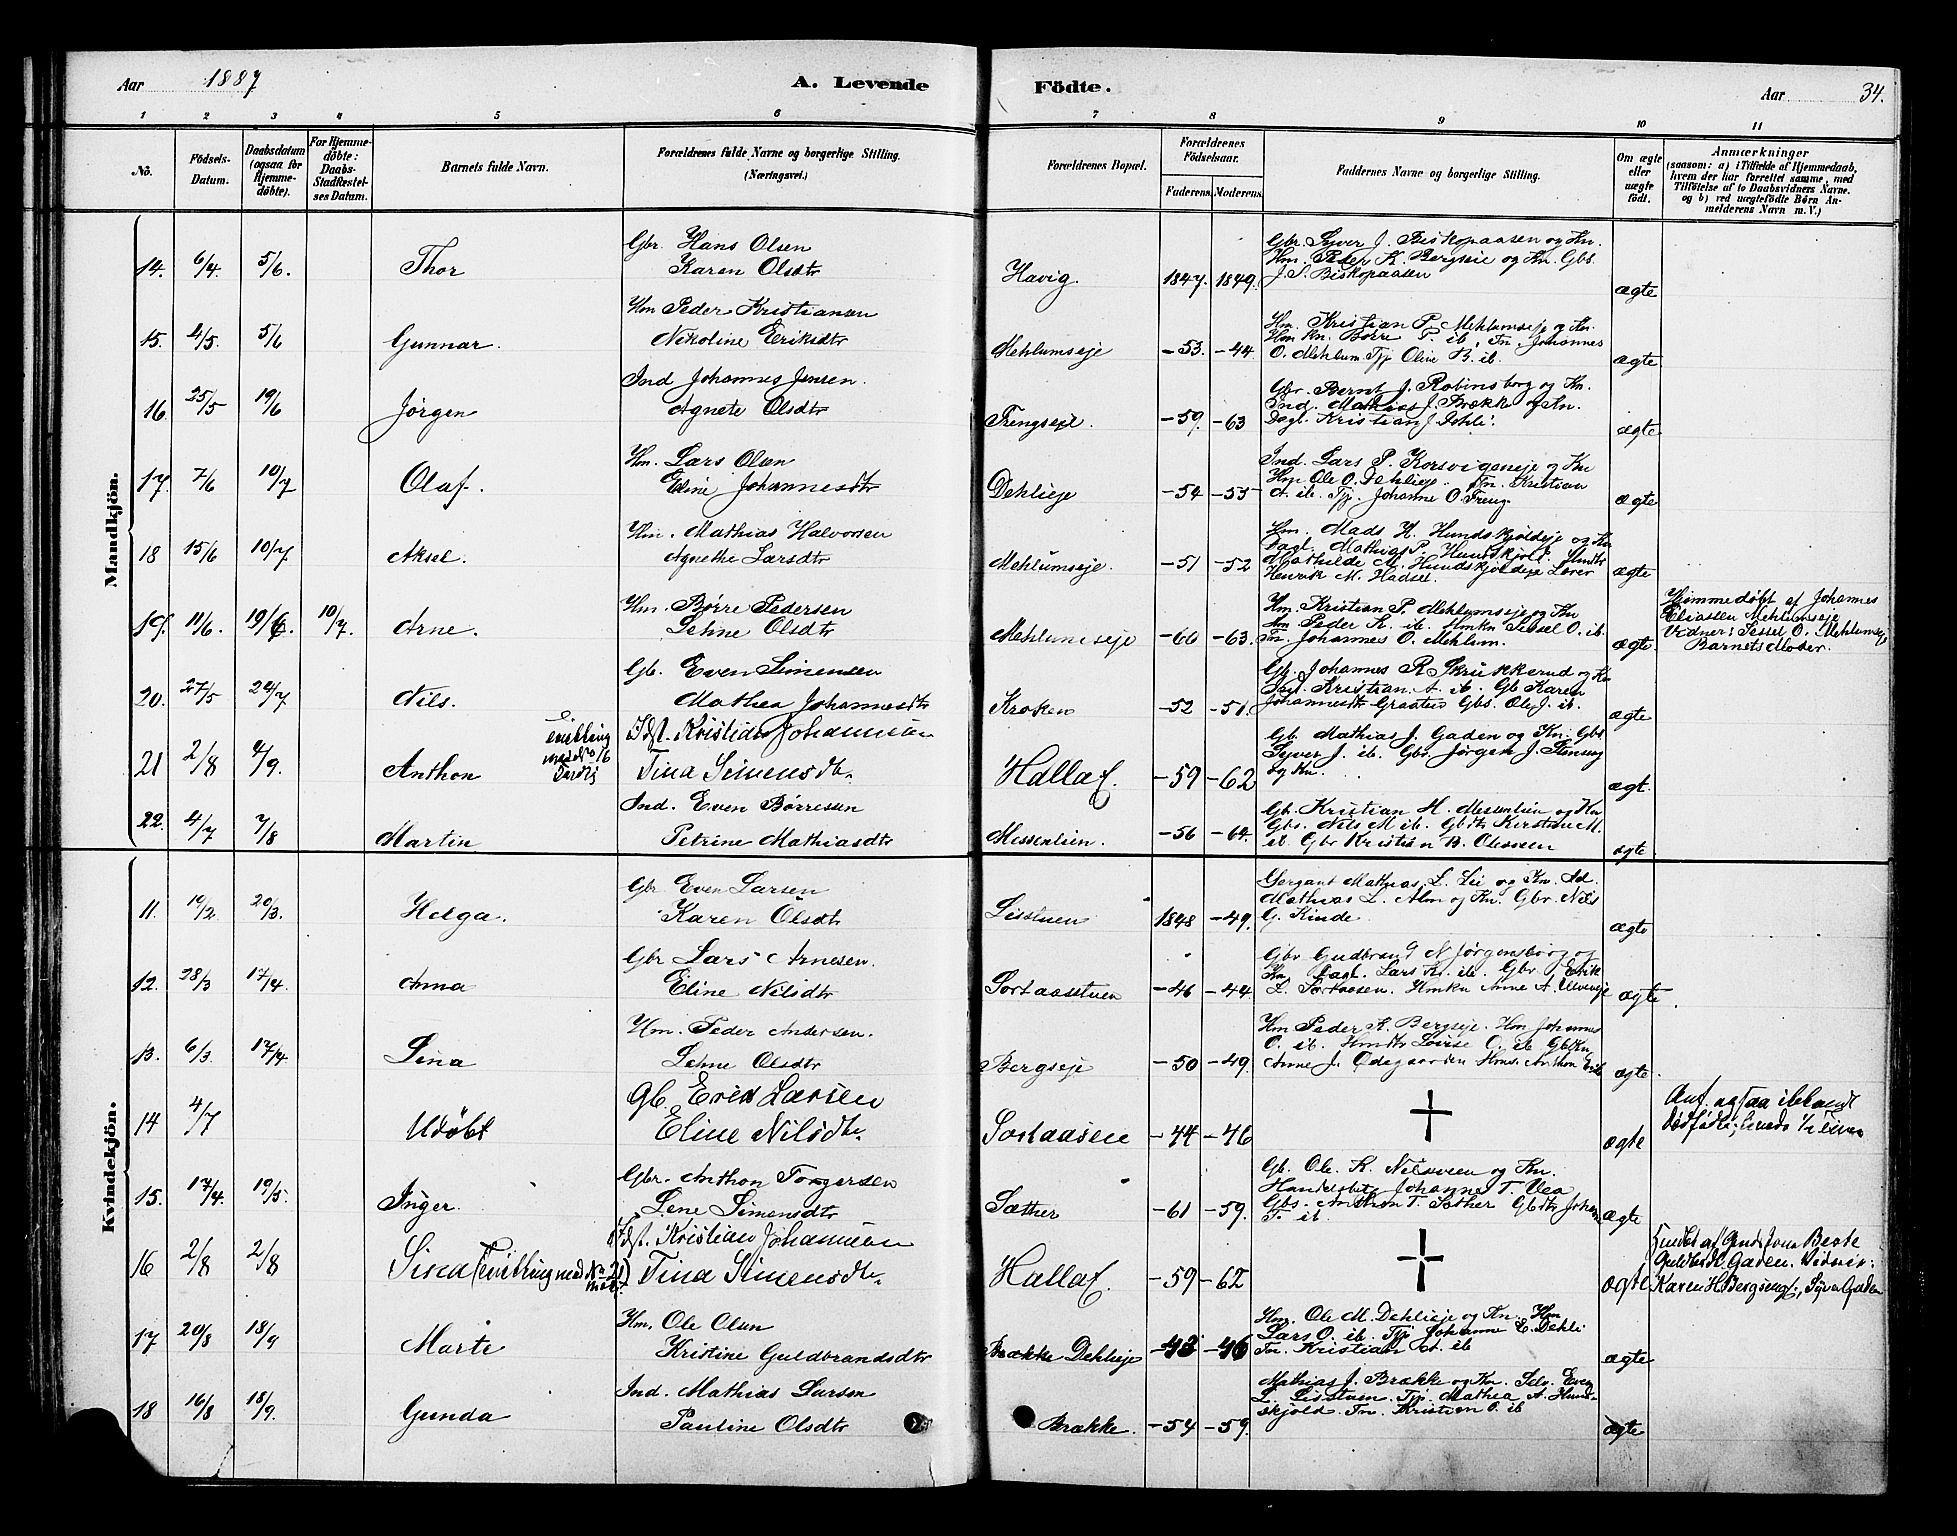 Aar 1887 A. Levende Födte. Aar 34.
1 2 3 4 5 6 7 8 9 10 11
No.
Födsels-
Datum.
Daabsdatum
(ogsaa for
Hjemme-
döbte).
For Hjemme-
döbte:
Daabs-
Stadfæstel-
ses Datum.
Barnets fulde Navn.
Forældrenes fulde Navne og borgerlige Stilling.
(Næringsvei.)
Forældrenes Bopæl.
Forældrenes
Födselsaar.
Faderens. Moderens.
Faddernes Navne og borgerlige Stilling.
Om ægte
eller
uægte
födt.
Anmærkninger
(saasom: a) i Tilfælde af Hjemmedaab,
hvem der har forrettet samme, med
Tilföielse af to Daabsvidners Navne.
og b) ved uægtefödte Börn An-
melderens Navn m. V.)
Mandkjön.
14. 6/4. 5/6. Thor
Gbr. Hans Olsen
Karen Olsdtr
Havig. 1847. 1849.
Gbr. Syver J. Biskopaasen og Kn.
Hm. Peder K. Bergseie og Kn. Gbs.
J. S. Biskopaasen
ægte
15. 4/5. 5/6 Gunnar.
Hm Peder Kristiansen
Nikoline Eriksdtr
Mehlumseje -53. -44.
Hm. Kristian P. Mehlumseje og Kn.
Hm Kn. Børre P. ib. Tn. Johannes
O. Mehlum. Tjp Oline B. ib.
ægte
16. 25/5 19/6 Jörgen
Ind Johannes Jensen.
Agnete Olsdtr
-59. -63
Gbr. Bernt J. Robinsborg og Kn.
Ind. Mathias J. Brækk og Kn.
Dagl. Kristian J. Dehli.
ægte
17. 7/6 10/7 Olaf.
Hm. Lars Olsen
Eline Johannesdtr
Dehlieje -54 -53
Ind. Lars P. Korsvigseje og Kn
Hm. Ole O. Dehlieje. Tn. Kristian
A. ib. Tjp. Johanne O. Freng.
ægte
18 15/6 10/7 Aksel.
Hm. Mathias Halvorsen
Agnethe Larsdtr
Mehlumseje. -51 -52
Hm. Mads H. Hundskjoldeje og Kn
Dagl. Mathias P. Hundskjold.
Mathilde M. Hundskjoldeje Lærer
Henrik M. Hadsel.
ægte
19. 11/6. 19/6. 10/7. Arne.
Hm. Børre Pedersen
Lehne Olsdtr
Mehlumseje -60 -63.
Hm. Kristian P. Mehlumseje og Kn
Hm Peder K. ib. Hmkn Sessel O. ib.
Tn. Johannes O. Mehlum.
ægte.
Hjemmedöbt af Johannes
Eliassen Mehlumseje
Vidner: Sessel O. Mehlumseje
Barnets Moder.
20. 27/5 24/7 Nils.
Gb. Even Simensen
Mathea Johannesdtr
Kroken -52 -51.
Gb. Johannes R. Skrukkerud og Kn
Dagl. Kristian A. ib. Gb Karen
Johannesdtr Graaten Gbs. Ole J. ib.
ægte
21 2/8 4/9. Anthon
Idst. Kristian Johannesen
Tina Simensdtr.
Hallaf. -59 -62
Gb. Mathias J. Gaden og Kn. Gbs
Syver J. ib. Gbr. Jörgen J. Stensvg
og Kn.
ægt.
22. 4/7 7/8 Martin
Ind. Even Børresen
Petrine Mathiasdtr
Messenlien. -56 -64.
Gb. Kristian H. Messenlien og Kn
Gbs. Nils M ib. Gbdtr Kirstine M.
ib. Gbr Kristian B. Olessen
ægte
Kvindekjön.
11. 19/2. 20/3. Helga.
Gbr Even Larsen
Karen Olsdtr
Lisstuen 1848 -49.
Sergant Mathias L. Lie og Kn. Id.
Mathias L. Alm og Kn. Gbr. Nils
G. Kinde
ægte
12. 28/3 17/4. Anna
Gbr Lars Arnesen.
Eline Nilsdtr
Sortaasstuen -46 -44
Gbr Gudbrand N Jørgensborg og
Kn Dagl. Lars K. ib. Gbr. Erik
L. Sortaasen. Hmkn Anne A. Ulveseje
ægte.
13. 6/3. 17/4. Lina
Hm. Peder Andersen.
Lehne Olsdtr
Bergseje -50 -49.
Hm Peder K. Bergseje. Hm Johannes
O. ib. Hmdtr Lovise O. ib Gbkn
Anne J. Ødegaarden Hms. Anthon ib
ægte.
14 4/7 Udöbt
Gb. Erik Larsen
Eline Nilsdtr.
Sortaasen -44 -46
ægte
15. 17/4. 19/5. Inger.
Gbr. Anthon Torgersen
Lene Simensdtr
Sæther -61 -59.
Gb. Ole K. Nilsveen og Kn.
Handelsbetj Johannes T. Vea
Gbs. Anthon T. Sæther Gbdtr Johan
T. ib.
ægte
16 2/8 2/8 Sina (Tvilling med No 21)
Idst. Kristian Johannesen
Tina Simensdtr.
Hallaf. -59 -62
ægte
Guldbr H. Gaden. Vidner:
Karen H. Bergseng, Syver Gaden
17 20/8 18/9 Marte
Hm. Ole Olsen
Kristine Guldbrandsdtr
Brække Dehlieje -43 -46
Hm. Ole M. Dehlieje og Kn. Hm
Lars O. ib. Tjp Johanne E. Dehli
Tn. Kristian A. ib
ægte
18 16/8 18/9. Gunda
Ind. Mathias Larsen
Pauline Olsdtr
Brække. -54 -59.
Mathias J. Brække og Kn. Selv. Even
L. Lisstuen. Tjp. Mathea A. Hund-
skjold. Tn. Kristian O. ib
ægte